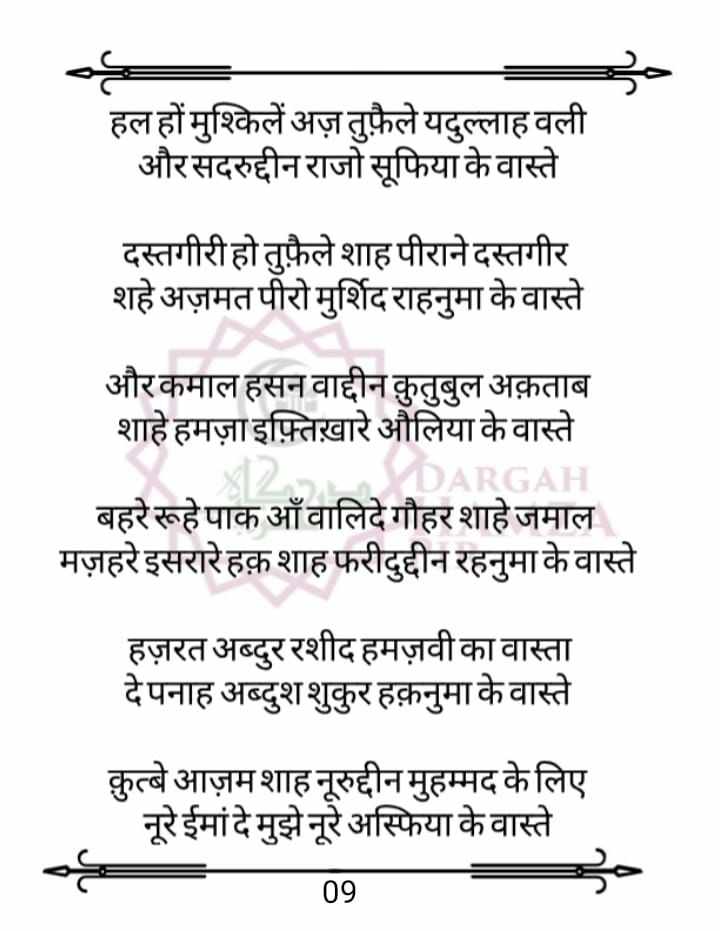 हल हों मुश्किलें अज़ तुफ़ैले यदुल्लाह वली
और सदरुद्दीन राजो सूफिया के वास्ते
दस्तगीरी हो तुफ़ैले शाह पीराने दस्तगीर
शहे अज़मत पीरो मुर्शिद राहनुमा के वास्ते
और कमाल हसन वाद्दीन क़ुतुबुल अक़ताब
शाहे हमज़ा इफ़्तिख़ारे औलिया के वास्ते
DARGAH
HAMZA
PIR
बहरे रूहे पाक आँ वालिदे गौहर शाहे जमाल
मज़हरे इसरारे हक़ शाह फरीदुद्दीन रहनुमा के वास्ते
हज़रत अब्दुर रशीद हमज़वी का वास्ता
दे पनाह अब्दुश शुकुर हक़नुमा के वास्ते
क़ुत्बे आज़म शाह नूरुद्दीन मुहम्मद के लिए
नूरे ईमां दे मुझे नूरे अस्फिया के वास्ते
09